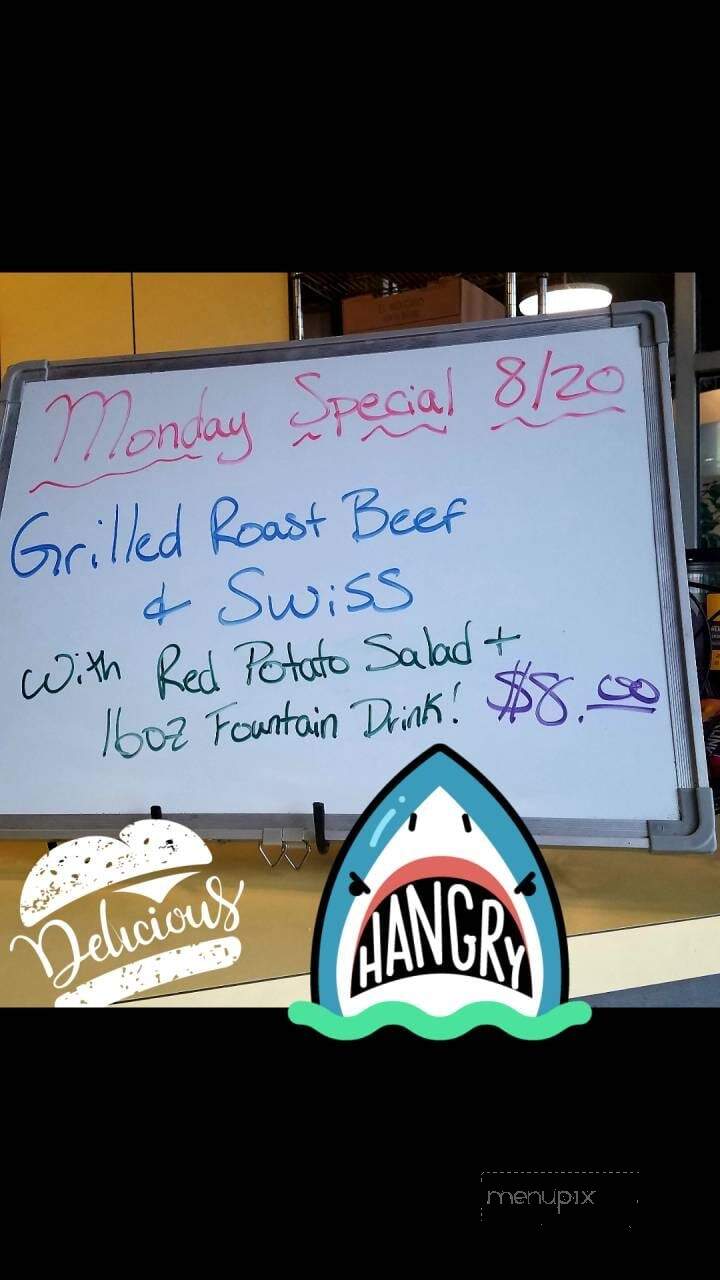 Monday Special 8/20
Grilled Roast Beef
& Swiss
with Red Potato Salad +
16oz Fountain Drink! $8.00
Delicious
HANGRY
menupix